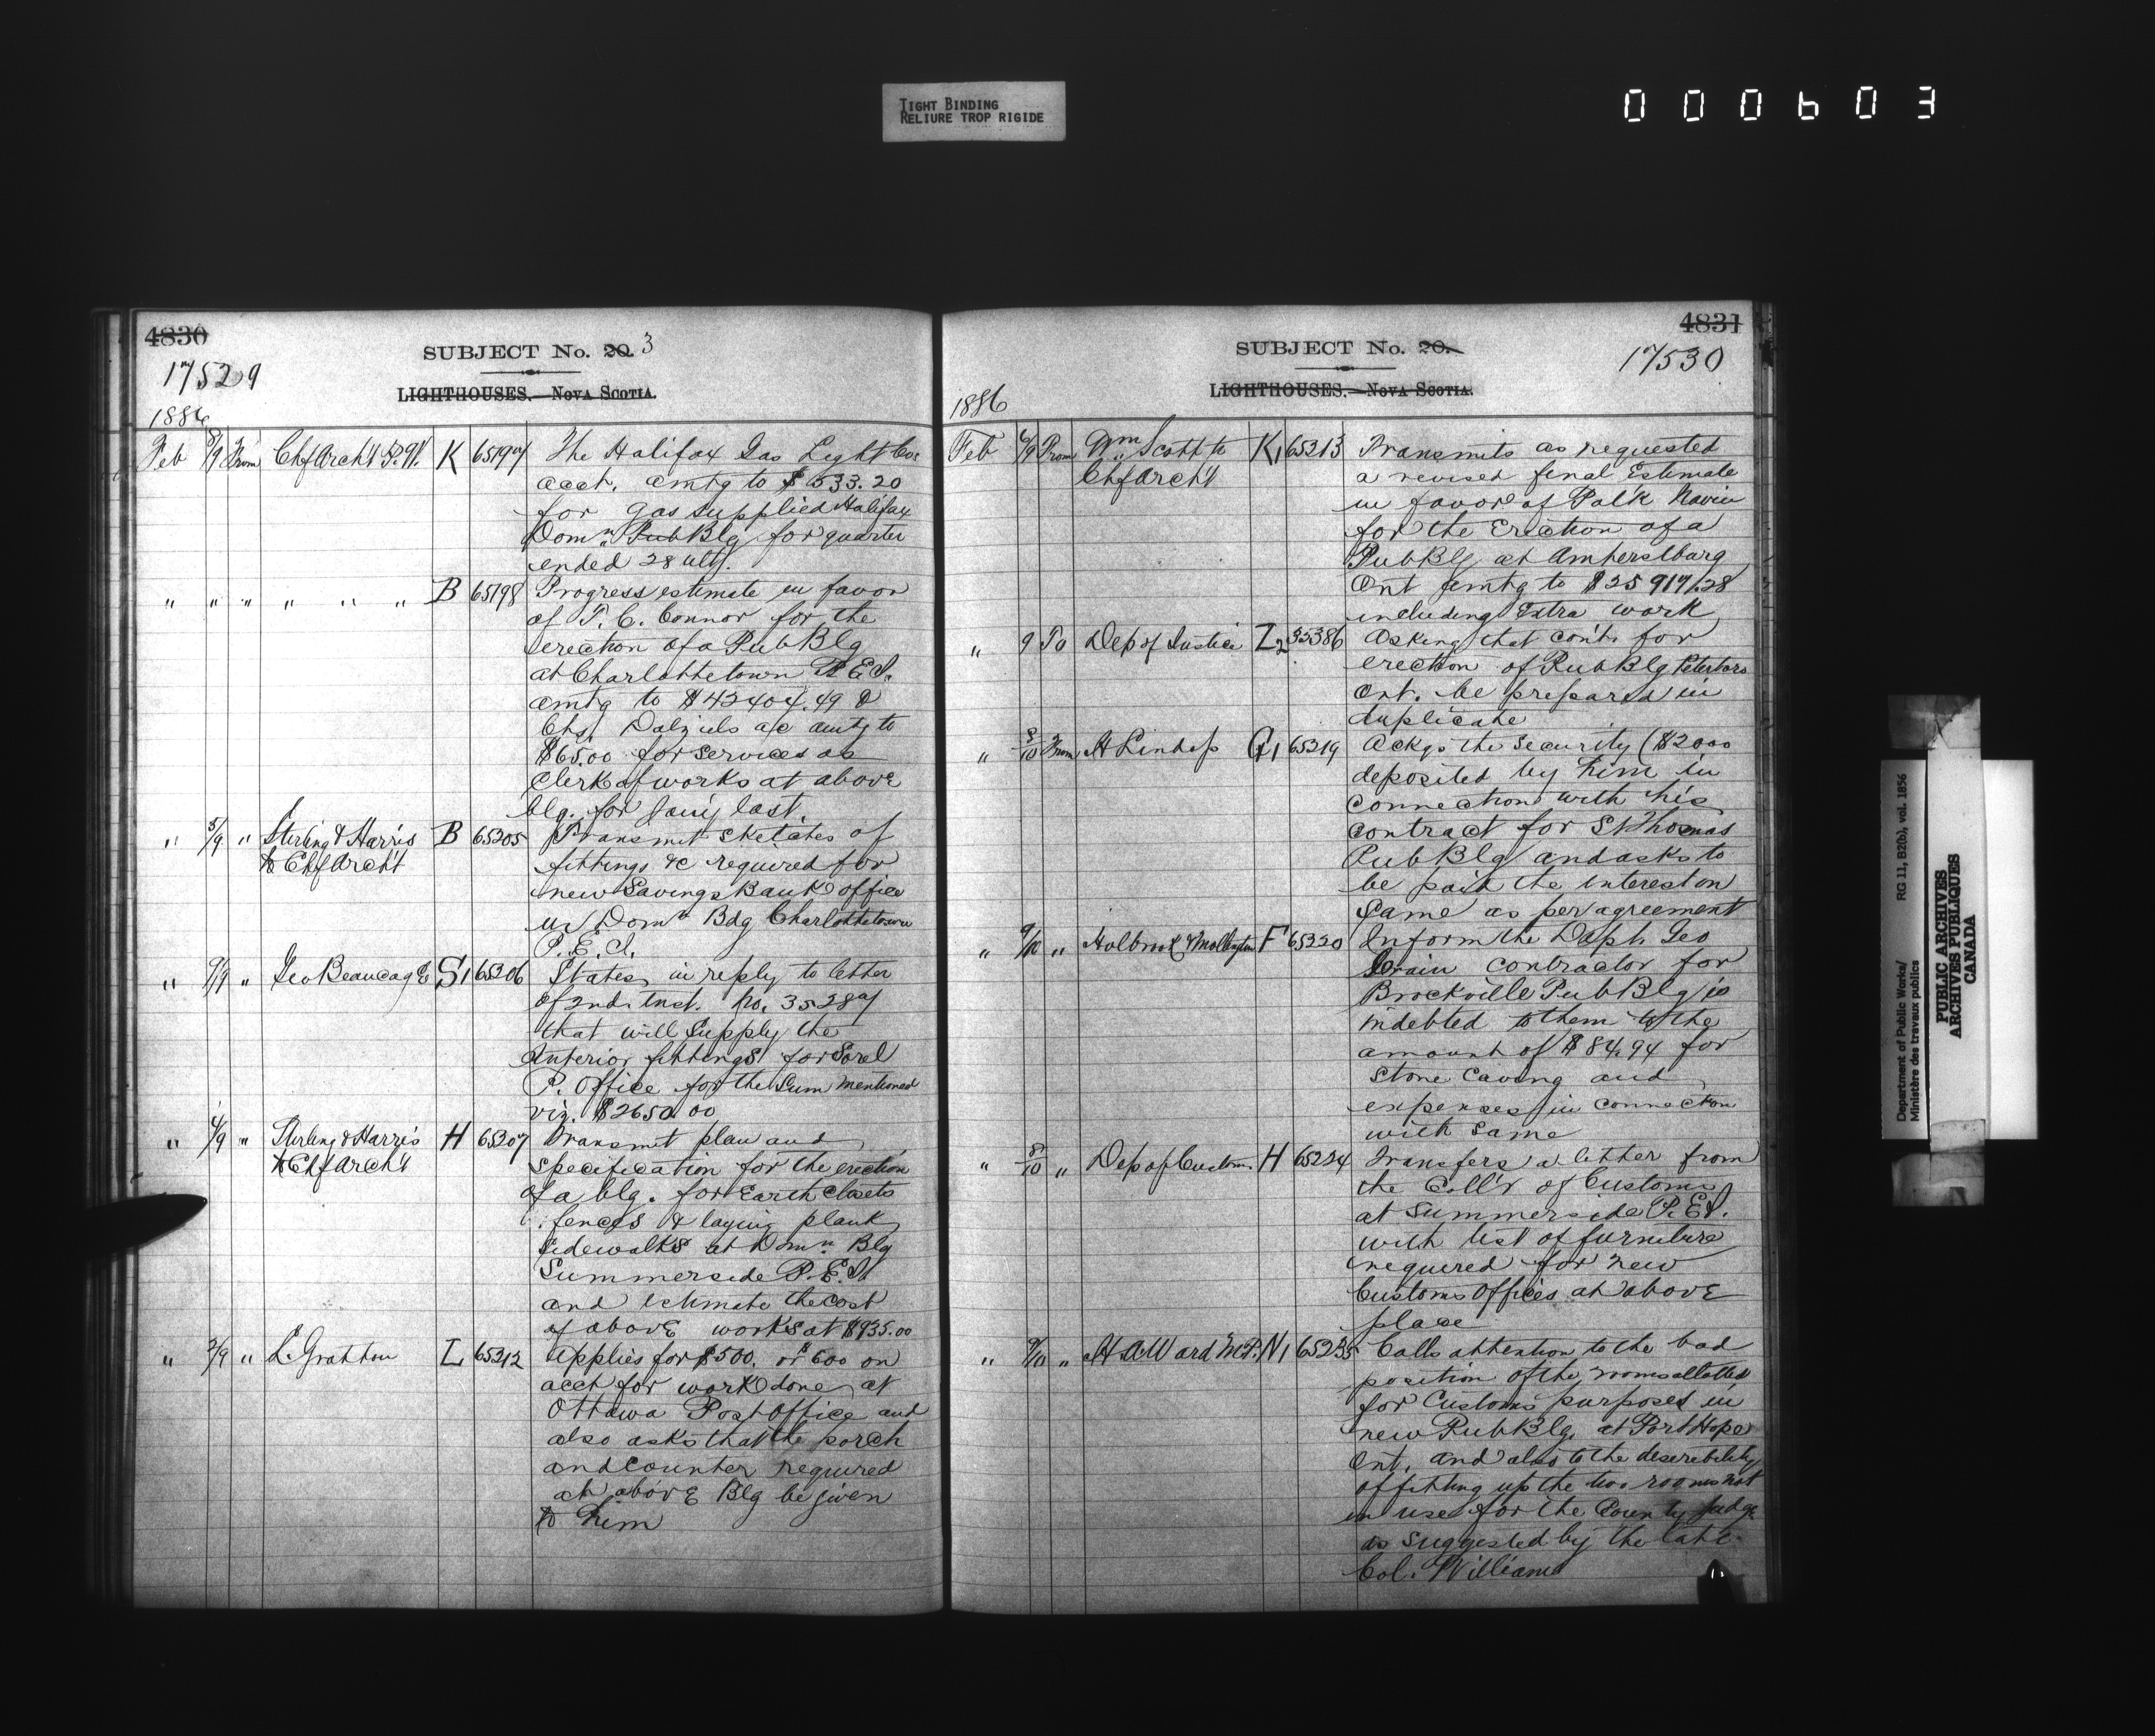 TIGHT BINDING
RELIURE TROP RIGIDE
000603
4830
17529
SUBJECT No. 20. 3
LIGHTHOUSES.—NOVA SCOTIA.
1886
Feb 8/9 From Chf Arch't P.W. K 65197 The Halifax Gas Light Cos
acct. amtg to $533.20
for gas supplied Halifax
Domn. Pub Blg for quarter
ended 28 ult.
" " " " " " B 65198 Progress estimate in favor
of T. C. Connor for the
erection of a Pub Blg
at Charlottetown P.E.I.
amtg to $42404.49 &
Chs. Dalziels a/c amtg to
$65.00 for services as
Clerk of works at above
blg. for Jany last.
" 5/9 " Sterling & Harris B 65205 Transmit sketches of
to Chf Arch't fittings &c required for
new Savings Bank office
in Domn Bdg Charlottetown
P.E.I.
" 9/9 " Geo Beaucage S1 65206 States in reply to letter
of 2nd. Inst. No. 35287
that will supply the
Interior fittings for Sorel
P. Office for the Sum mentioned
viz. $2650.00
" 4/9 " Sterling & Harris H 65207 Transmit plan and
to Chf Arch't specification for the erection
of a blg. for Earth Closets
fences & laying plank
sidewalks at Domn. Blg
Summerside P.E.I.
and estimate the cost
of above works at $935.00
" 3/9 " L. Gratton L 65212 Applies for $500. or $600 on
acct for work done at
Ottawa Post Office and
also asks that the porch
and counter required
at above Blg be given
to him
4831
17530
SUBJECT No. 20.
LIGHTHOUSES.—NOVA SCOTIA.
1886
Feb 6/9 From Wm. Scott to K1 65213 Transmits as requested
Chf Arch't a revised final Estimate
in favor of Pat'k Navin
for the Erection of a
Pub Blg at Amherstburg
Ont amtg to $25917.28
including Extra work
" 9 To Dep of Justice I2 35386 Asking that cont. for
erection of Pub Blg Peterboro
Ont. be prepared in
duplicate
" 8/10 From H Lindop G1 65219 Ackgs the Security ($2000
deposited by him in
connection with his
contract for St Thomas
Pub Blg and asks to
be paid the interest on
same as per agreement
" 9/10 " Holbrook & Mollington F 65220 Inform the Dept. Geo
Crain contractor for
Brockville Pub Blg is
indebted to them to the
amount of $84.94 for
Stone Caving and
expenses in connection
with same
" 8/10 " Dep of Customs H 65224 Transfers a letter from
the Coll'r of Customs
at Summerside P.E.I.
with list of furniture
required for new
Customs Offices at above
place
" 9/10 " H. A Ward M.P. N1 65235 Calls attention to the bad
position of the rooms allotted
for Customs purposes in
new Pub Blg. at Port Hope
Ont. and also to the desirebility
of fitting up the two rooms not
in use for the County Judge
as suggested by the late
Col. Williams
Department of Public Works/
Ministère des travaux publics
RG 11, B2(b), vol. 1856
PUBLIC ARCHIVES
ARCHIVES PUBLIQUES
CANADA